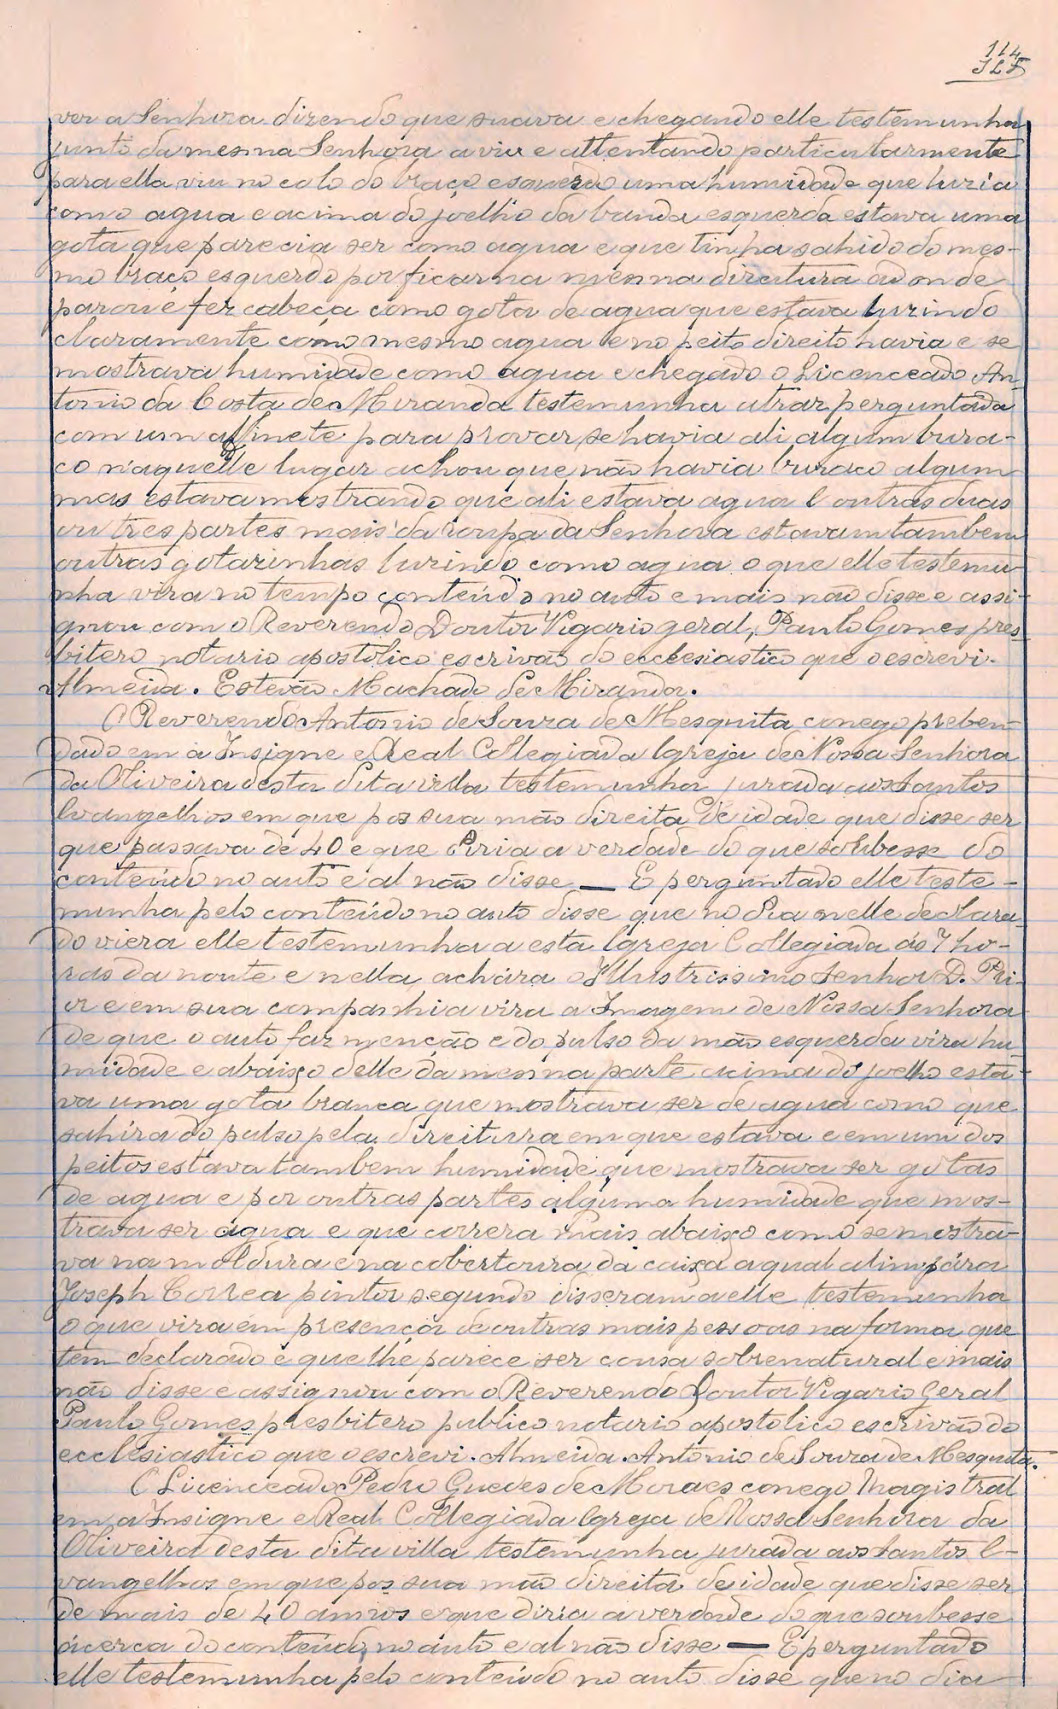 114
ver a Senhora dizendo que suava e chegando elle testemunha
junto da mesma Senhora a viu e attentando particularmente
para ella viu no colo do braço esquerdo uma humidade que luzia
como agua e acima do joelho da banda esquerda estava uma
gota que parecia ser como agua e que tinha sahido do mes-
mo braço esquerdo por ficar na mesma direitura adonde
parou e fez cabeça como gota de agua que estava luzindo
claramente como mesmo agua e no peito direito havia e se
mostrava humidade como agua e chegado o Licenceado An-
tonio da Costa de Miranda testemunha atraz perguntada
com um alfinete para provar se havia ali algum bura-
co n'aquelle lugar achou que não havia buraco algum
mas estava mostrando que ali estava agua e outras duas
ou tres partes mais da roupa da Senhora estavam tambem
outras gotazinhas luzindo como agua o que elle testemu-
nha vira no tempo conteúdo no auto e mais não disse e assi-
gnou com o Reverendo Doutor Vigario geral, Paulo Gomes pres-
bitero notario apostolico escrivão do ecclesiastico que o escrevi.
Almeida. Estevão Machado de Miranda.
O Reverendo Antonio de Souza de Mesquita conego preben-
dado em a Insigne e Real Collegiada Igreja de Nossa Senhora
da Oliveira desta dita villa testemunha jurada aos Santos
Evangelhos em que pos sua mão direita de idade que disse ser
que passava de 40 e que diria a verdade do que soubesse do
conteúdo no auto e al não disse — E perguntado elle teste-
munha pelo conteúdo no auto disse que no dia nelle declara-
do viera elle testemunha a esta Igreja Collegiada ás 7 ho-
ras da noute e nella achára o Illustrissimo Senhor D. Pri-
or e em sua companhia vira a Imagem de Nossa Senhora
de que o auto faz menção e do pulso da mão esquerda vira hu-
midade e abaixo delle da mesma parte acima do joelho esta-
va uma gota branca que mostrava ser de agua como que
sahira do pulso pela direitura em que estava e em um dos
peitos estava tambem humidade que mostrava ser gotas
de agua e por outras partes alguma humidade que mos-
trava ser agua e que correra mais abaixo como se mostra-
va na moldura e na cobertoura da caixa a qual alimpára
Joseph Correa pintor segundo disseram a elle testemunha
o que vira em presença de outras mais pessoas na forma que
tem declarado e que lhe parece ser cousa sobrenatural e mais
não disse e assignou com o Reverendo Doutor Vigario Geral
Paulo Gomes presbitero publico notario apostolico escrivão do
ecclesiastico que o escrevi. Almeida. Antonio de Souza de Mesquita.
O Licenceado Pedro Guedes de Moraes conego Magistral
em a Insigne e Real Collegiada Igreja de Nossa Senhora da
Oliveira desta dita villa testemunha jurada aos Santos E-
vangelhos em que pos sua mão direita de idade que disse ser
de mais de 40 annos e que diria a verdade do que soubesse
ácerca do conteúdo no auto e al não disse — E perguntado
elle testemunha pelo conteúdo no auto disse que no dia